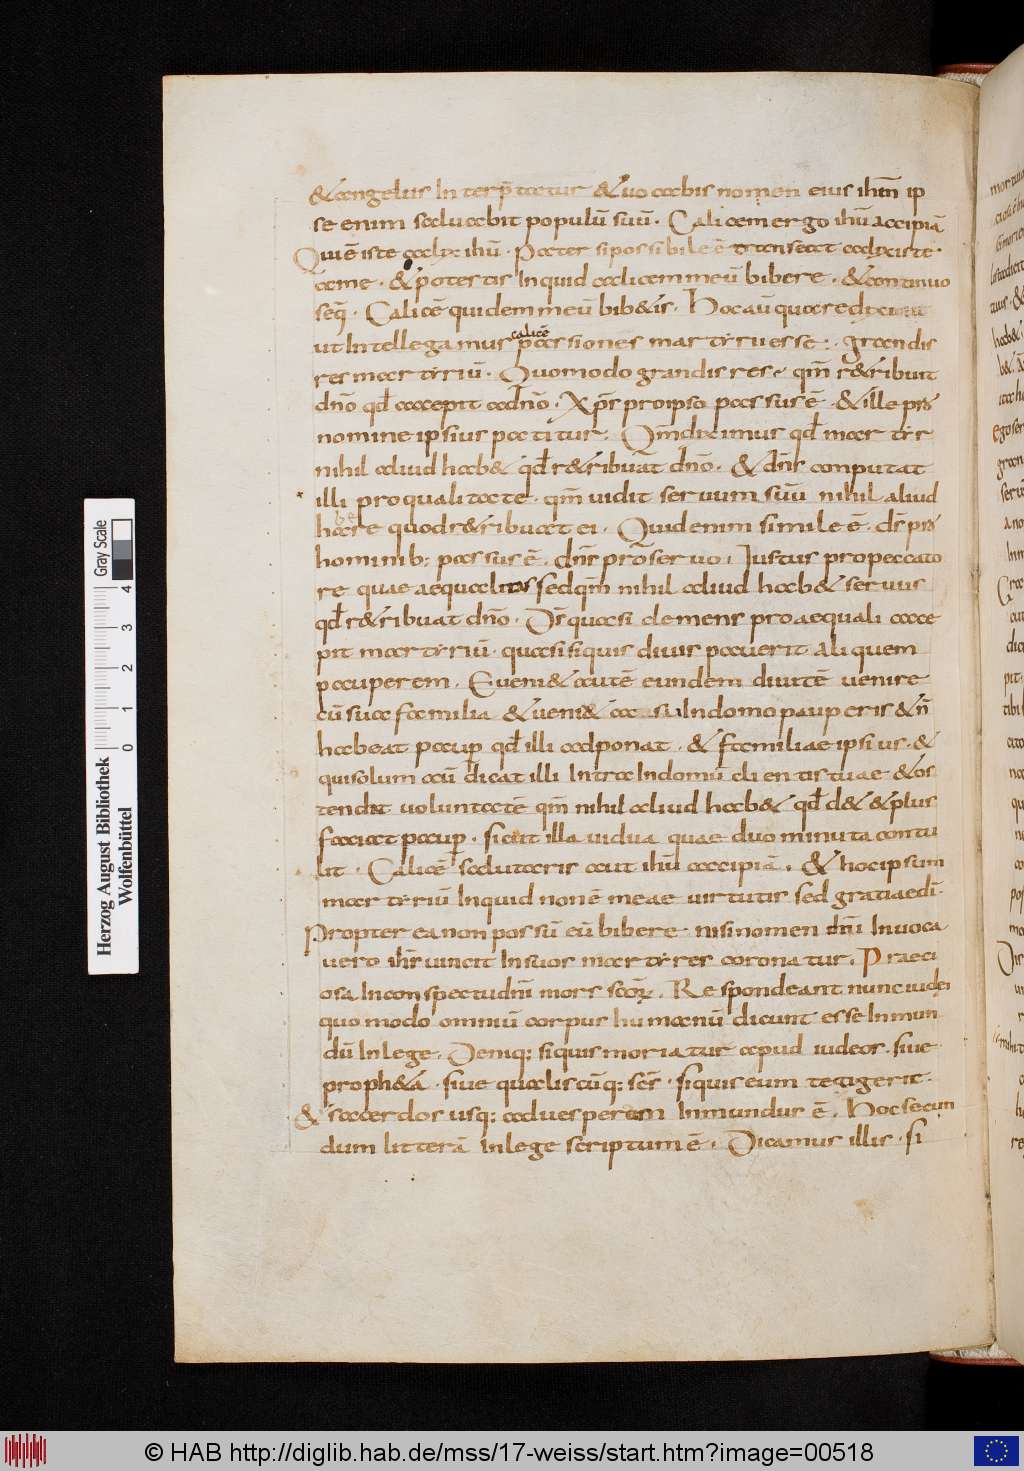 &angelus Interp̄tatur &uocabis nomen eius ihm̄ ip
se enim saluabit populū suū · Calicem ergo ihū accipiā
Qui ē iste calix ihū · Pater si possibile ē transeat calix iste ·
a me · & potestis Inquid calicem meū bibere · & continuo
seq̄ · Calicē quidem meū bib&is · Hoc aū quare diximus
ut Intellegamus calicē passiones martyru esse · grandis
res martyriū · Quomodo grandis res · qm̄ r&ribuit
dn̄o qđ accepit a dn̄o · Xp̄s pro ipso passus ē · & ille pro
nomine ipsius patitur · Qm̄ diximus qđ martyr
nihil aliud hab& qđ r&ribuat dn̄o · & dn̄s conputat
illi pro qualitate · qm̄ uidit seruum suū nihil aliud
habere quod r&ribuat ei · Quid enim simile ē · ds̄ pro
hominib: passus ē · dn̄s pro seruo · Iustus pro peccato
re quae aequalitas sed qm̄ nihil aliud hab& seruus
qđ r&ribuat dn̄o · Ds̄ quasi clemens pro aequali acce
pit martyriū · quasi si quis diues pauerit aliquem
pauperem · Eueni& autē eundem diuitē uenire
cū sua familia & ueni& ac si In domo pauperis & n̄
habeat paup̄ qđ illi adponat · & familiae ipsius · &
qui solum aū dicat illi Intra In domū clientis tuae & os
tendat uoluntatē qm̄ nihil aliud hab& qđ d& & plus
faciat paup̄ · sicut illa uidua quae duo minuta contu
lit · Calicē salutaris aut ihū accipiā · & hoc ipsum
martyriū Inquid non ē meae uirtutis sed gratiae dī ·
Propterea non possū eū bibere nisi nomen dn̄i Inuoca
uero ihs̄ uincit In suos martyres coronatur · Praeci
osa In conspectu dn̄i mors scōrꝝ · Respondeant nunc iudei
quomodo omniū corpus humanū dicunt esse Inmun
dū In lege · Deniq: si quis moriatur apud iudeos · siue
proph&a · siue qualiscūq: scs̄ · si quis eum tetigerit ·
& sacerdos usq: ad uesperam Inmundus ē · Hoc secun
dum litterā In lege scriptum ē · Dicamus illis · si
Herzog August Bibliothek
Wolfenbüttel
0 1 2 3 4
Gray Scale
© HAB http://diglib.hab.de/mss/17-weiss/start.htm?image=00518